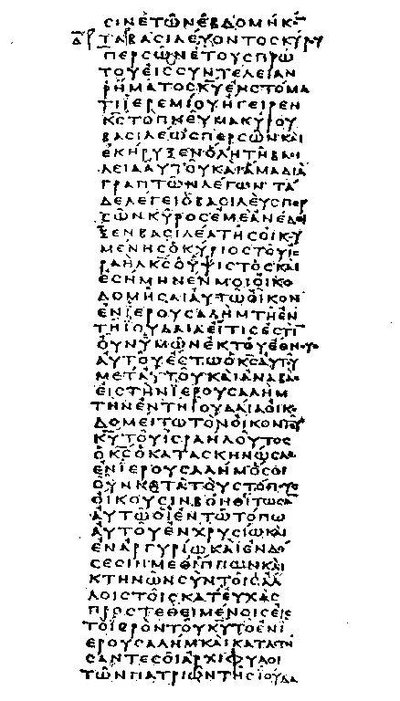 ϹΙΝΕΤΩΝΕΒΔΟΜΗΚ
ΤΑΒΑϹΙΛΕΥΟΝΤΟϹΚΥΡΟΥ
ΠΕΡϹΩΝΕΤΟΥϹΠΡΩ
ΤΟΥΕΙϹϹΥΝΤΕΛΕΙΑΝ
ΡΗΜΑΤΟϹΚΥΕΝϹΤΟΜΑ
ΤΙΙΕΡΕΜΙΟΥΗΓΕΙΡΕΝ
ΚϹΤΟΠΝΕΥΜΑΚΥΡΟΥ
ΒΑϹΙΛΕΩϹΠΕΡϹΩΝΚΑΙ
ΕΚΗΡΥΞΕΝΟΛΗΤΗΒΑϹΙ
ΛΕΙΑΑΥΤΟΥΚΑΙΑΜΑΔΙΑ
ΓΡΑΠΤΩΝΛΕΓΩΝ ΤΑ
ΔΕΛΕΓΕΙΟΒΑϹΙΛΕΥϹΠΕΡ
ϹΩΝΚΥΡΟϹΕΜΕΑΝΕΔΙ
ΞΕΝΒΑϹΙΛΕΑΤΗϹΟΙΚΟΥ
ΜΕΝΗϹΟΚΥΡΙΟϹΤΟΥΙϹ
ΡΑΗΛΚϹΟΥΨΙϹΤΟϹΚΑΙ
ΕϹΗΜΗΝΕΝΜΟΙΟΙΚΟ
ΔΟΜΗϹΑΙΑΥΤΩΟΙΚΟΝ
ΕΝΙΕΡΟΥϹΑΛΗΜΤΗΕΝ
ΤΗΙΟΥΔΑΙΑΕΙΤΙϹΕϹΤΙ
ΟΥΝΥΜΩΝΕΚΤΟΥΕΘΝΟΥ
ΑΥΤΟΥΕϹΤΩΟΚϹΑΥΤΟΥ
ΜΕΤΑΥΤΟΥΚΑΙΑΝΑΒΑϹ
ΕΙϹΤΗΝΙΕΡΟΥϹΑΛΗΜ
ΤΗΝΕΝΤΗΙΟΥΔΑΙΑΟΙΚΟ
ΔΟΜΕΙΤΩΤΟΝΟΙΚΟΝΤΟΥ
ΚΥΤΟΥΙϹΡΑΗΛΟΥΤΟϹ
ΟΚϹΟΚΑΤΑϹΚΗΝΩϹΑϹ
ΕΝΙΕΡΟΥϹΑΛΗΜΟϹΟΙ
ΟΥΝΚΑΤΑΤΟΥϹΤΟΠΟΥϹ
ΟΙΚΟΥϹΙΝΒΟΗΘΙΤΩϹΑΝ
ΑΥΤΩΟΙΕΝΤΩΤΟΠΩ
ΑΥΤΟΥΕΝΧΡΥϹΙΩΚΑΙ
ΕΝΑΡΓΥΡΙΩΚΑΙΕΝΔΟ
ϹΕϹΙΝΜΕΘΙΠΠΩΝΚΑΙ
ΚΤΗΝΩΝϹΥΝΤΟΙϹΑΛ
ΛΟΙϹΤΟΙϹΚΑΤΕΥΧΑϹ
ΠΡΟϹΤΕΘΕΙΜΕΝΟΙϹΕΙϹ
ΤΟΙΕΡΟΝΤΟΥΚΥΤΟΕΝΙ
ΕΡΟΥϹΑΛΗΜΚΑΙΚΑΤΑϹΤΗ
ϹΑΝΤΕϹΟΙΑΡΧΙΦΥΛΟΙ
ΤΩΝΠΑΤΡΙΩΝΤΗϹΙΟΥΔΑ